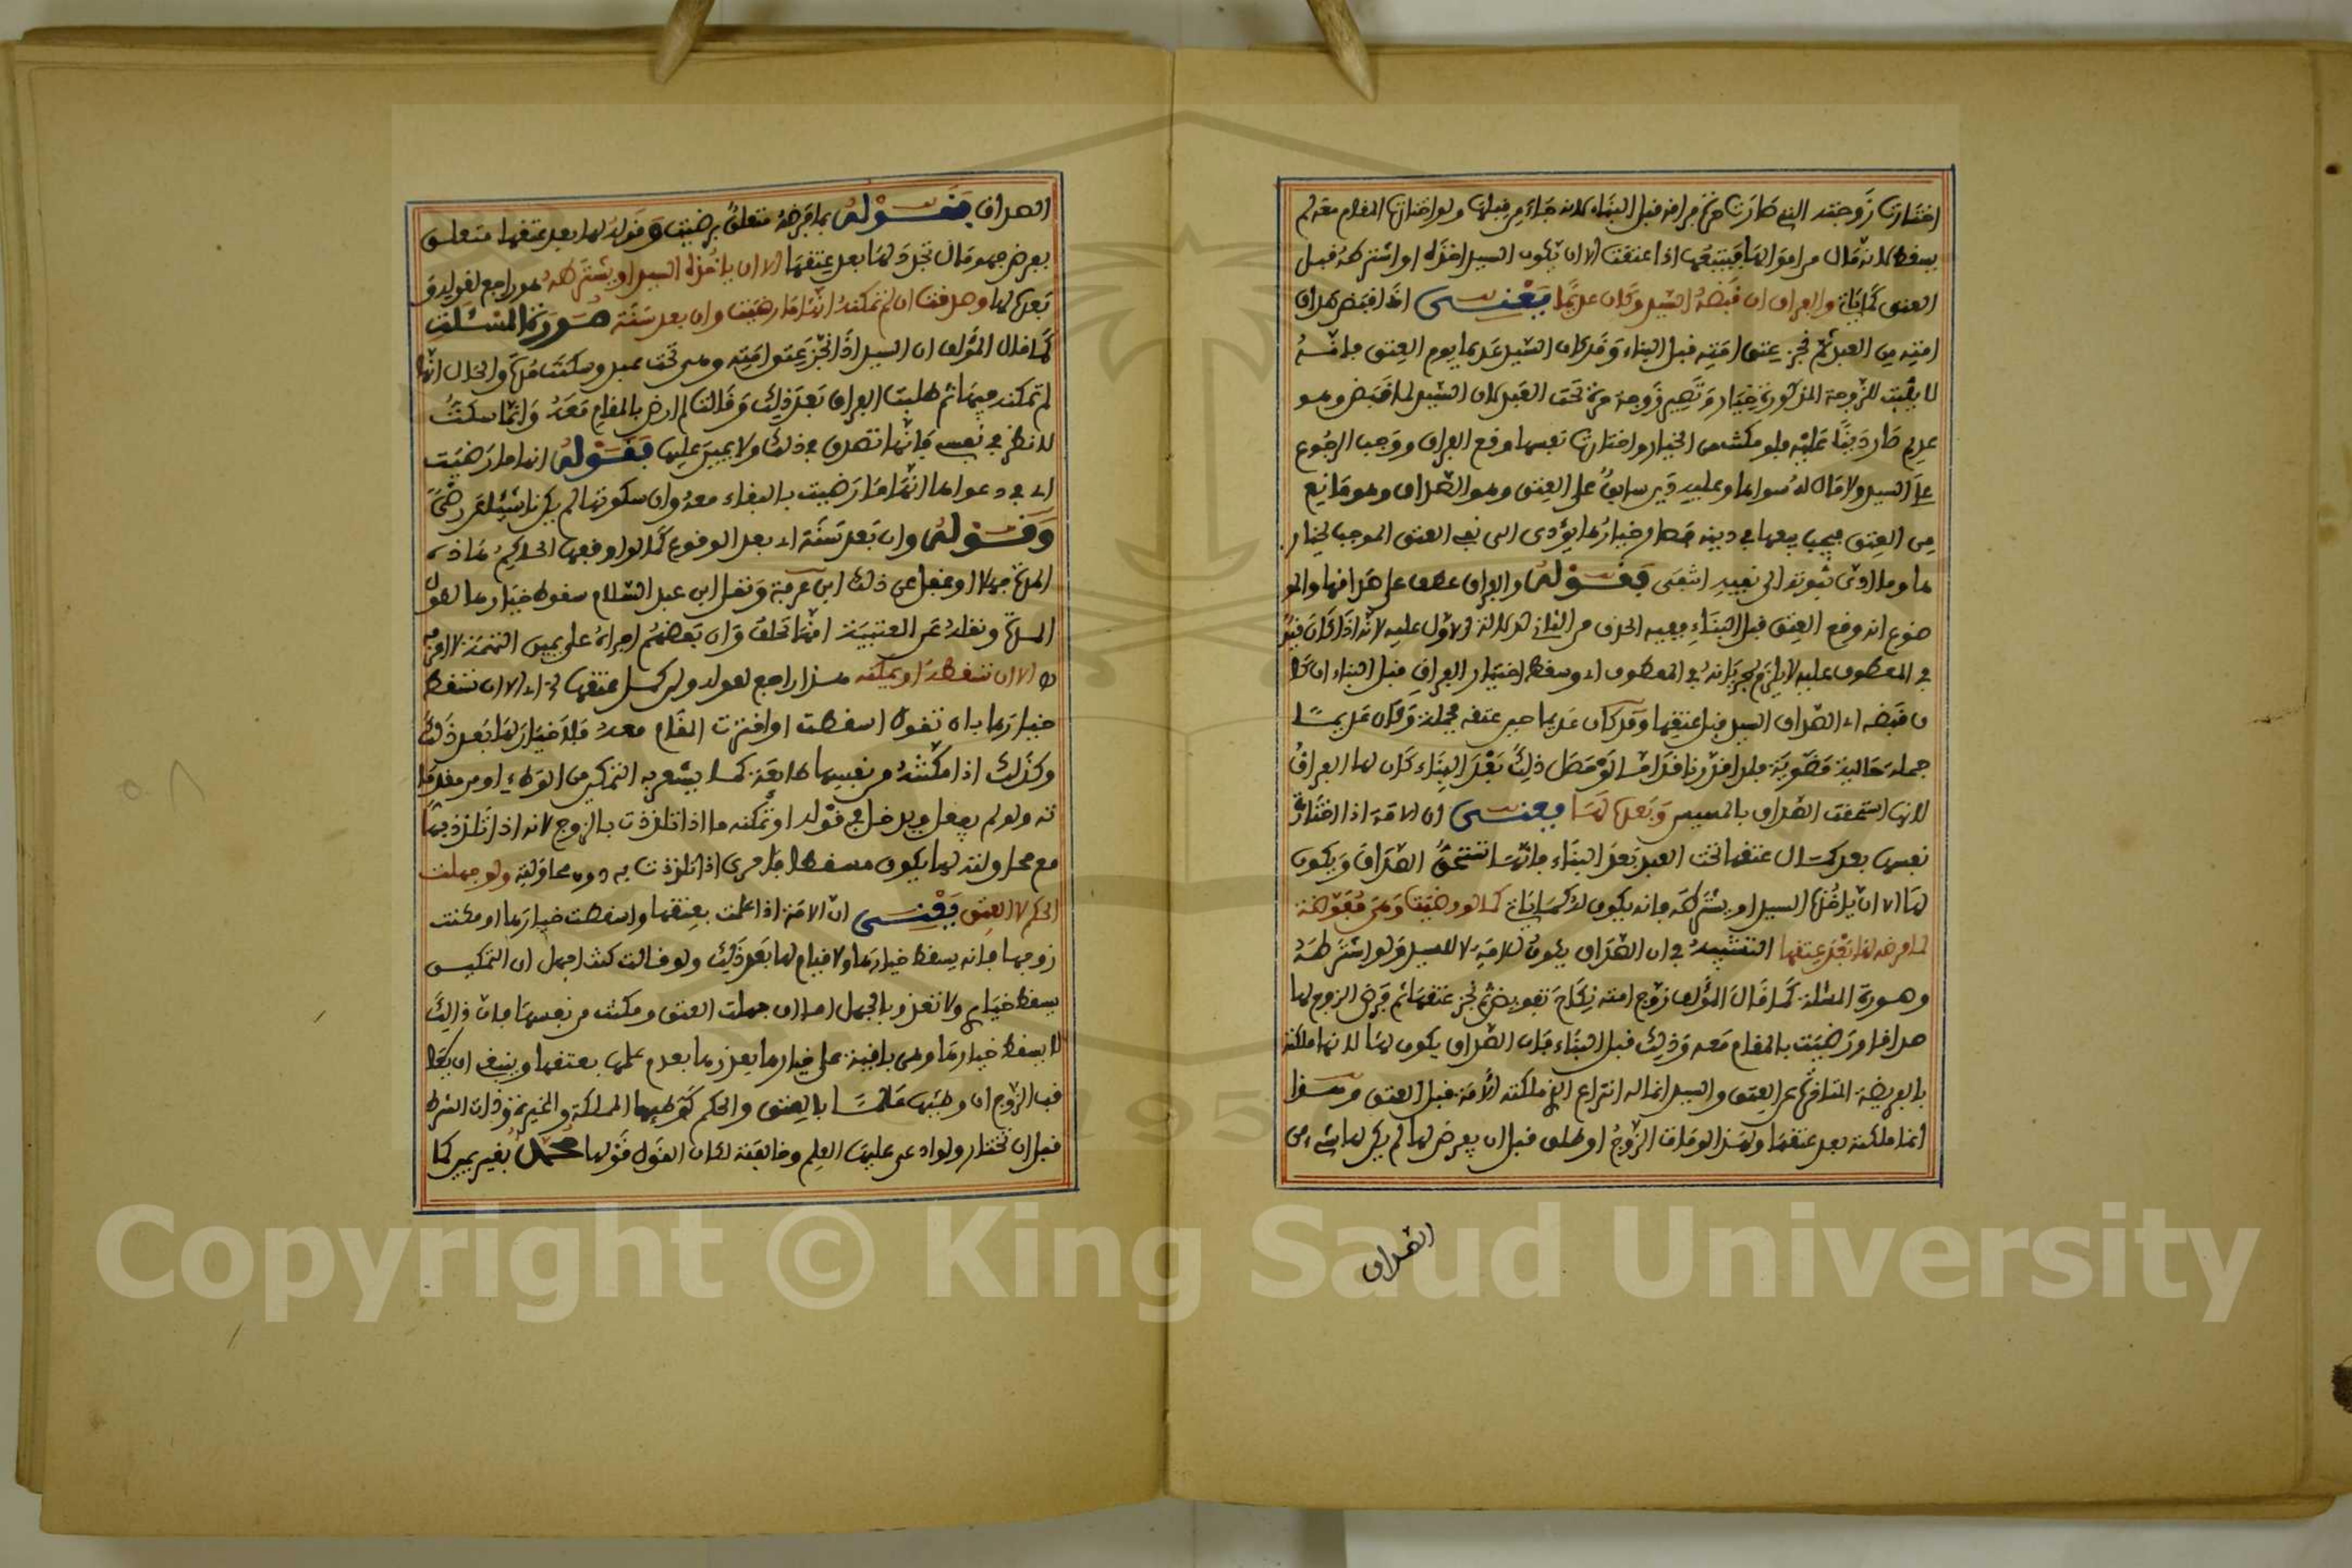 اختارت زوجته التي صارت حرة فراقه قبل البناء لانه جاء من قبلها ولو اختارت المقام معه لم
يسقط لانه مال من اموالها فيتبعها اذا اعتقت الا ان يكون السيد اخذه او اشترطه قبل
العتق كما ياتي والفراق ان قبضه السيد وكان عديما يعنى اذا قبض صداق
امته من العبد ثم نجز عتق امته قبل البناء وقد كان السيد عديما يوم العتق فانه
لا يثبت للزوجة المذكورة خيار وتصير زوجة حرة تحت العبد لان السيد لما قبض وهو
عديم صار دينا عليه فلو مكنت من الخيار واختارت نفسها وقع الفراق ووجب الرجوع
على السيد ولا مال له سواها وعليه دين سابق على العتق وهو الصداق وهو مانع
من العتق فيجب بيعها في دينه فصار خيارها يؤدى الى نفي العتق الموجب لخيار
ها وما ادى ثبوته الى نفيه انتفى فقوله والفراق عطف على صداقها والمو
ضوع انه وقع العتق قبل البناء ففيه الحذف من الثاني لدلالة الاول عليه لانه اذا كان قيد
في المعطوف عليه لا يلزم جريانه في المعطوف اي وسقط اختيار الفراق قبل البناء ان كا
ن قبضه اي الصداق السيد قبل عتقها وقد كان عديما حين عتقه فجملة وكان عديما
جملة حالية فلو حصل ذلك بعد البناء كان لها الفراق
لانها استحقت الصداق بالمسيس وبعده لها يعنى ان الامة اذا اختارت
نفسها بعد كمال عتقها تحت العبد بعد البناء فانها تستحق الصداق ويكون
لها الا ان ياخذه السيد او يشترطه فانه يكون له كما ياتي كما لو رضيت وهي مفوضة
بما فرضه لها بعد عتقها التشبيه في ان الصداق يكون للامة لا للسيد ولو اشترطه
وصورة المسئلة كما قال المؤلف زوج امته نكاح تفويض ثم نجز عتقها ثم فرض الزوج لها
صداقا ورضيت بالمقام معه وذلك قبل البناء فان الصداق يكون لها لانها ملكته
بالفريضة المتاخرة عن العتق والسيد انما له انتزاع ما ملكته الامة قبل العتق وهذا
انما ملكته بعد عتقها ولهذا لو مات الزوج او طلق قبل ان يفرض لها لم يكن لها شيء من
الصداق
الصداق فقوله بما فرضه متعلق برضيت وقوله لها بعد عتقها متعلق
بفرض فهو مال تجدد لها بعد عتقها الا ان ياخذه السيد او يشترطه هو راجع لقوله و
بعده لها وصدقت ان لم تمكنه انها ما رضيت وان بعد سنة صورة المسئلة
كما قال المؤلف ان السيد اذا نجز عتق امته وهي تحت عبد وسكتت مدة والحال انها
لم تمكنه فيها ثم طلبت الفراق بعد ذلك وقالت لم ارض بالمقام معه وانما سكت
لانظر في نفسي فانها تصدق في ذلك ولا يمين عليها فقوله انها ما رضيت
اي في دعواها انها ما رضيت بالبقاء معه وان سكوتها لم يكن ناشئا عن رضى
وقوله وان بعد سنة اي بعد الوقوع كما لو اوقفها الحاكم هذه
المدة جهلا او غفل عن ذلك ابن عرفة ونقل ابن عبد السلام سقوط خيارها لطول
المدة ونقله عن العتبية انها تحلف وان بعضهم اجراه على يمين التهمة لا اعرفه
الا ان تسقطه او تمكنه هذا راجع لقوله ولمن كمل عتقها اي الا ان تسقط
خيارها بان تقول اسقطت او اخترت المقام معه فلا خيار لها بعد ذلك
وكذلك اذا مكنته من نفسها طايعة كما يشعر به التمكين من الوطء او من مقدما
ته ولو لم يفعل ويدخل في قوله او تمكنه ما اذا تلذذت بالزوج لانه اذا تلذذ بها
مع محاولته لها يكون مسقطا فاحرى اذا تلذذت به دون محاولته ولو جهلت
الحكم لا العتق يعنى ان الامة اذا علمت بعتقها واسقطت خيارها او مكنت
زوجها فانه يسقط خيارها ولا قيام لها بعد ذلك ولو قالت كنت اجهل ان التمكين
يسقط خياري ولا تعذر بالجهل اما ان جهلت العتق ومكنت من نفسها فان ذلك
لا يسقط خيارها وهي باقية على خيارها بعذرها بعدم علمها بعتقها وينبغي ان يعا
قب الزوج ان وطئها عالما بالعتق والحكم كوطئها المملكة والمخيرة وذات الشرط
قبل ان تختار ولو ادعى عليها العلم وخالفته لكان القول قولها محمد بغير يمين كما